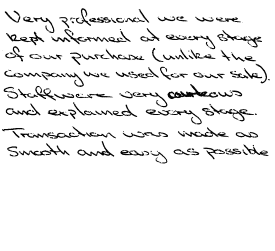 Very professional we were
kept informed at every stage
of our purchase (unlike the
company we used for our sale).
Staff were very courteous
and explained every stage.
Transaction was made as
smooth and easy as possible